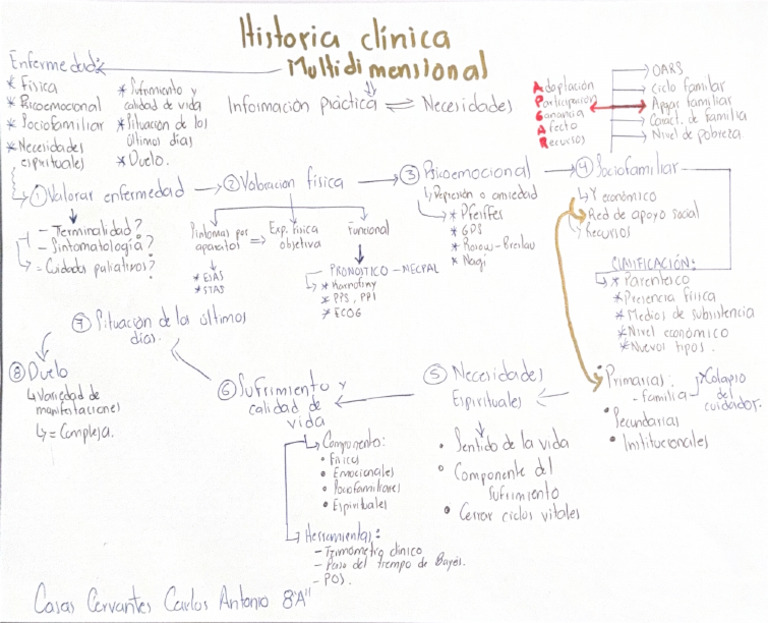 Historia clínica
Multidimensional
Enfermedad:
* Física
* Psicoemocional
* Sociofamiliar
* Necesidades
espirituales
* Sufrimiento y
calidad de vida
* Situación de los
últimos días
* Duelo.
Información práctica ⇌ Necesidades
Adaptación
Participación
Ganancia
Afecto
Recursos
→ OARS
→ Ciclo familiar
→ Apgar familiar
→ Caract. de familia
→ Nivel de pobreza
① Valorar enfermedad
- Terminalidad?
- Sintomatología?
= Cuidados paliativos?
② Valoración física
Síntomas por
aparatos
* EIAS
* STAS
⇒ Exp. física
objetiva
Funcional
PRONOSTICO - NECPAL
* Karnofsky
* PPS, PPI
* ECOG
③ Psicoemocional
Depresión o ansiedad
* Pfeiffer
* GDS
* Nagi
④ Sociofamiliar
Y económico
Red de apoyo social
Recursos
* Parentesco
* Presencia física
* Medios de subsistencia
* Nivel económico
* Nuevos tipos.
• Primarias:
- Familia
* Colapso
del
cuidador.
• Secundarias
• Institucionales
⑤ Necesidades
Espirituales
• Sentido de la vida
• Componente del
sufrimiento
• Cerrar ciclos vitales
⑥ Sufrimiento y
calidad de
vida
Componentes:
• Físicos
• Emocionales
• Sociofamiliares
• Espirituales
Herramientas:
- Termómetro clínico
- Paso del tiempo de Bayés.
- POS.
⑦ Situación de los últimos
días.
⑧ Duelo
Variedad de
manifestaciones
= Compleja.
Casas Cervantes Carlos Antonio 8"A"